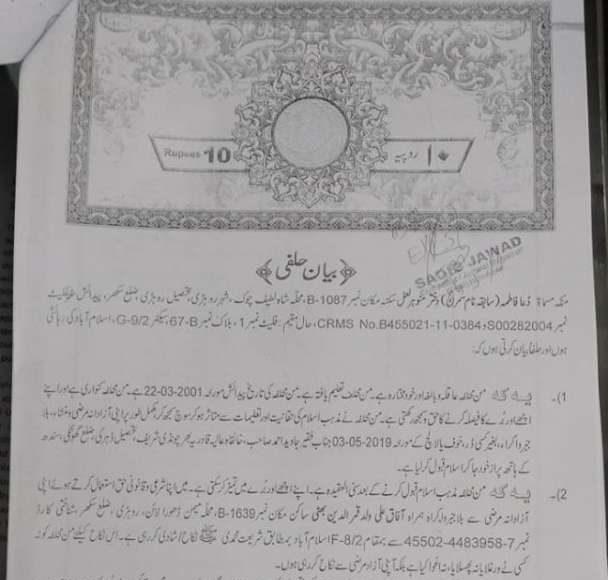 Rupees 10
۱۰ روپیہ
SADIQ JAWAD
﴿بیان حلفی﴾
منکہ مسماۃ دعا فاطمہ (سابقہ نام سرن) دختر منوہر لعل سکنہ مکان نمبر B-1087 محلہ شاہ لطیف چوک، شہر روہڑی، تحصیل روہڑی، ضلع سکھر، پیدائش
نمبر S00282004، CRMS No.B455021-11-0384، حال مقیم: فلیٹ نمبر 1، بلاک نمبر B-67، سیکٹر G-9/2، اسلام آباد کی رہائشی
ہوں اور حلفا بیان کرتی ہوں کہ:
1)۔ یہ کہ من مخالفہ عاقلہ و بالغہ اور خود مختارہ ہے۔ من مخالفہ تعلیم یافتہ ہے۔ من مخالفہ کی تاریخ پیدائش مورخہ 22-03-2001 ہے۔ من مخالفہ کنواری ہے اور اپنے
اچھے اور برے کا فیصلہ کرنے کا حق و سمجھ رکھتی ہے۔ من مخالفہ نے مذہب اسلام کی حقانیت اور تعلیمات سے متاثر ہو کر سوچ سمجھ کر مکمل طور پر اپنی آزادانہ مرضی و منشاء، بلا
جبر و اکراہ، بغیر کسی ڈر، خوف یا لالچ کے مورخہ 03-05-2019 جناب فقیر جاوید احمد صاحب، خانقاہ عالیہ قادریہ بھرچونڈی شریف، تحصیل ڈہرکی، ضلع گھوٹکی، سندھ
کے ہاتھ پر از خود جا کر اسلام قبول کر لیا ہے۔
2)۔ یہ کہ من مخالفہ مذہب اسلام قبول کرنے کے بعد سنی العقیدہ ہے۔ اپنے اچھے اور برے میں تمیز کر سکتی ہے۔ میں اپنا شرعی و قانونی حق استعمال کرتے ہوئے اپنی
آزادانہ مرضی سے بلا جبر و اکراہ ہمراہ آفاق علی ولد قمر الدین بھٹی ساکن مکان نمبر B-1639، محلہ میمن ڈھورا لائن، روہڑی، ضلع سکھر، شناختی کارڈ
نمبر 45502-4483958-7 سے بمقام F-8/2 اسلام آباد بمطابق شریعت محمدی ﷺ نکاح/شادی کر رہی ہے۔ اس نکاح کیلئے من مخالفہ کو نہ
کسی نے ورغلایا نہ پھسلایا، نہ اغوا کیا ہے بلکہ اپنی آزاد مرضی سے نکاح کر رہی ہوں۔